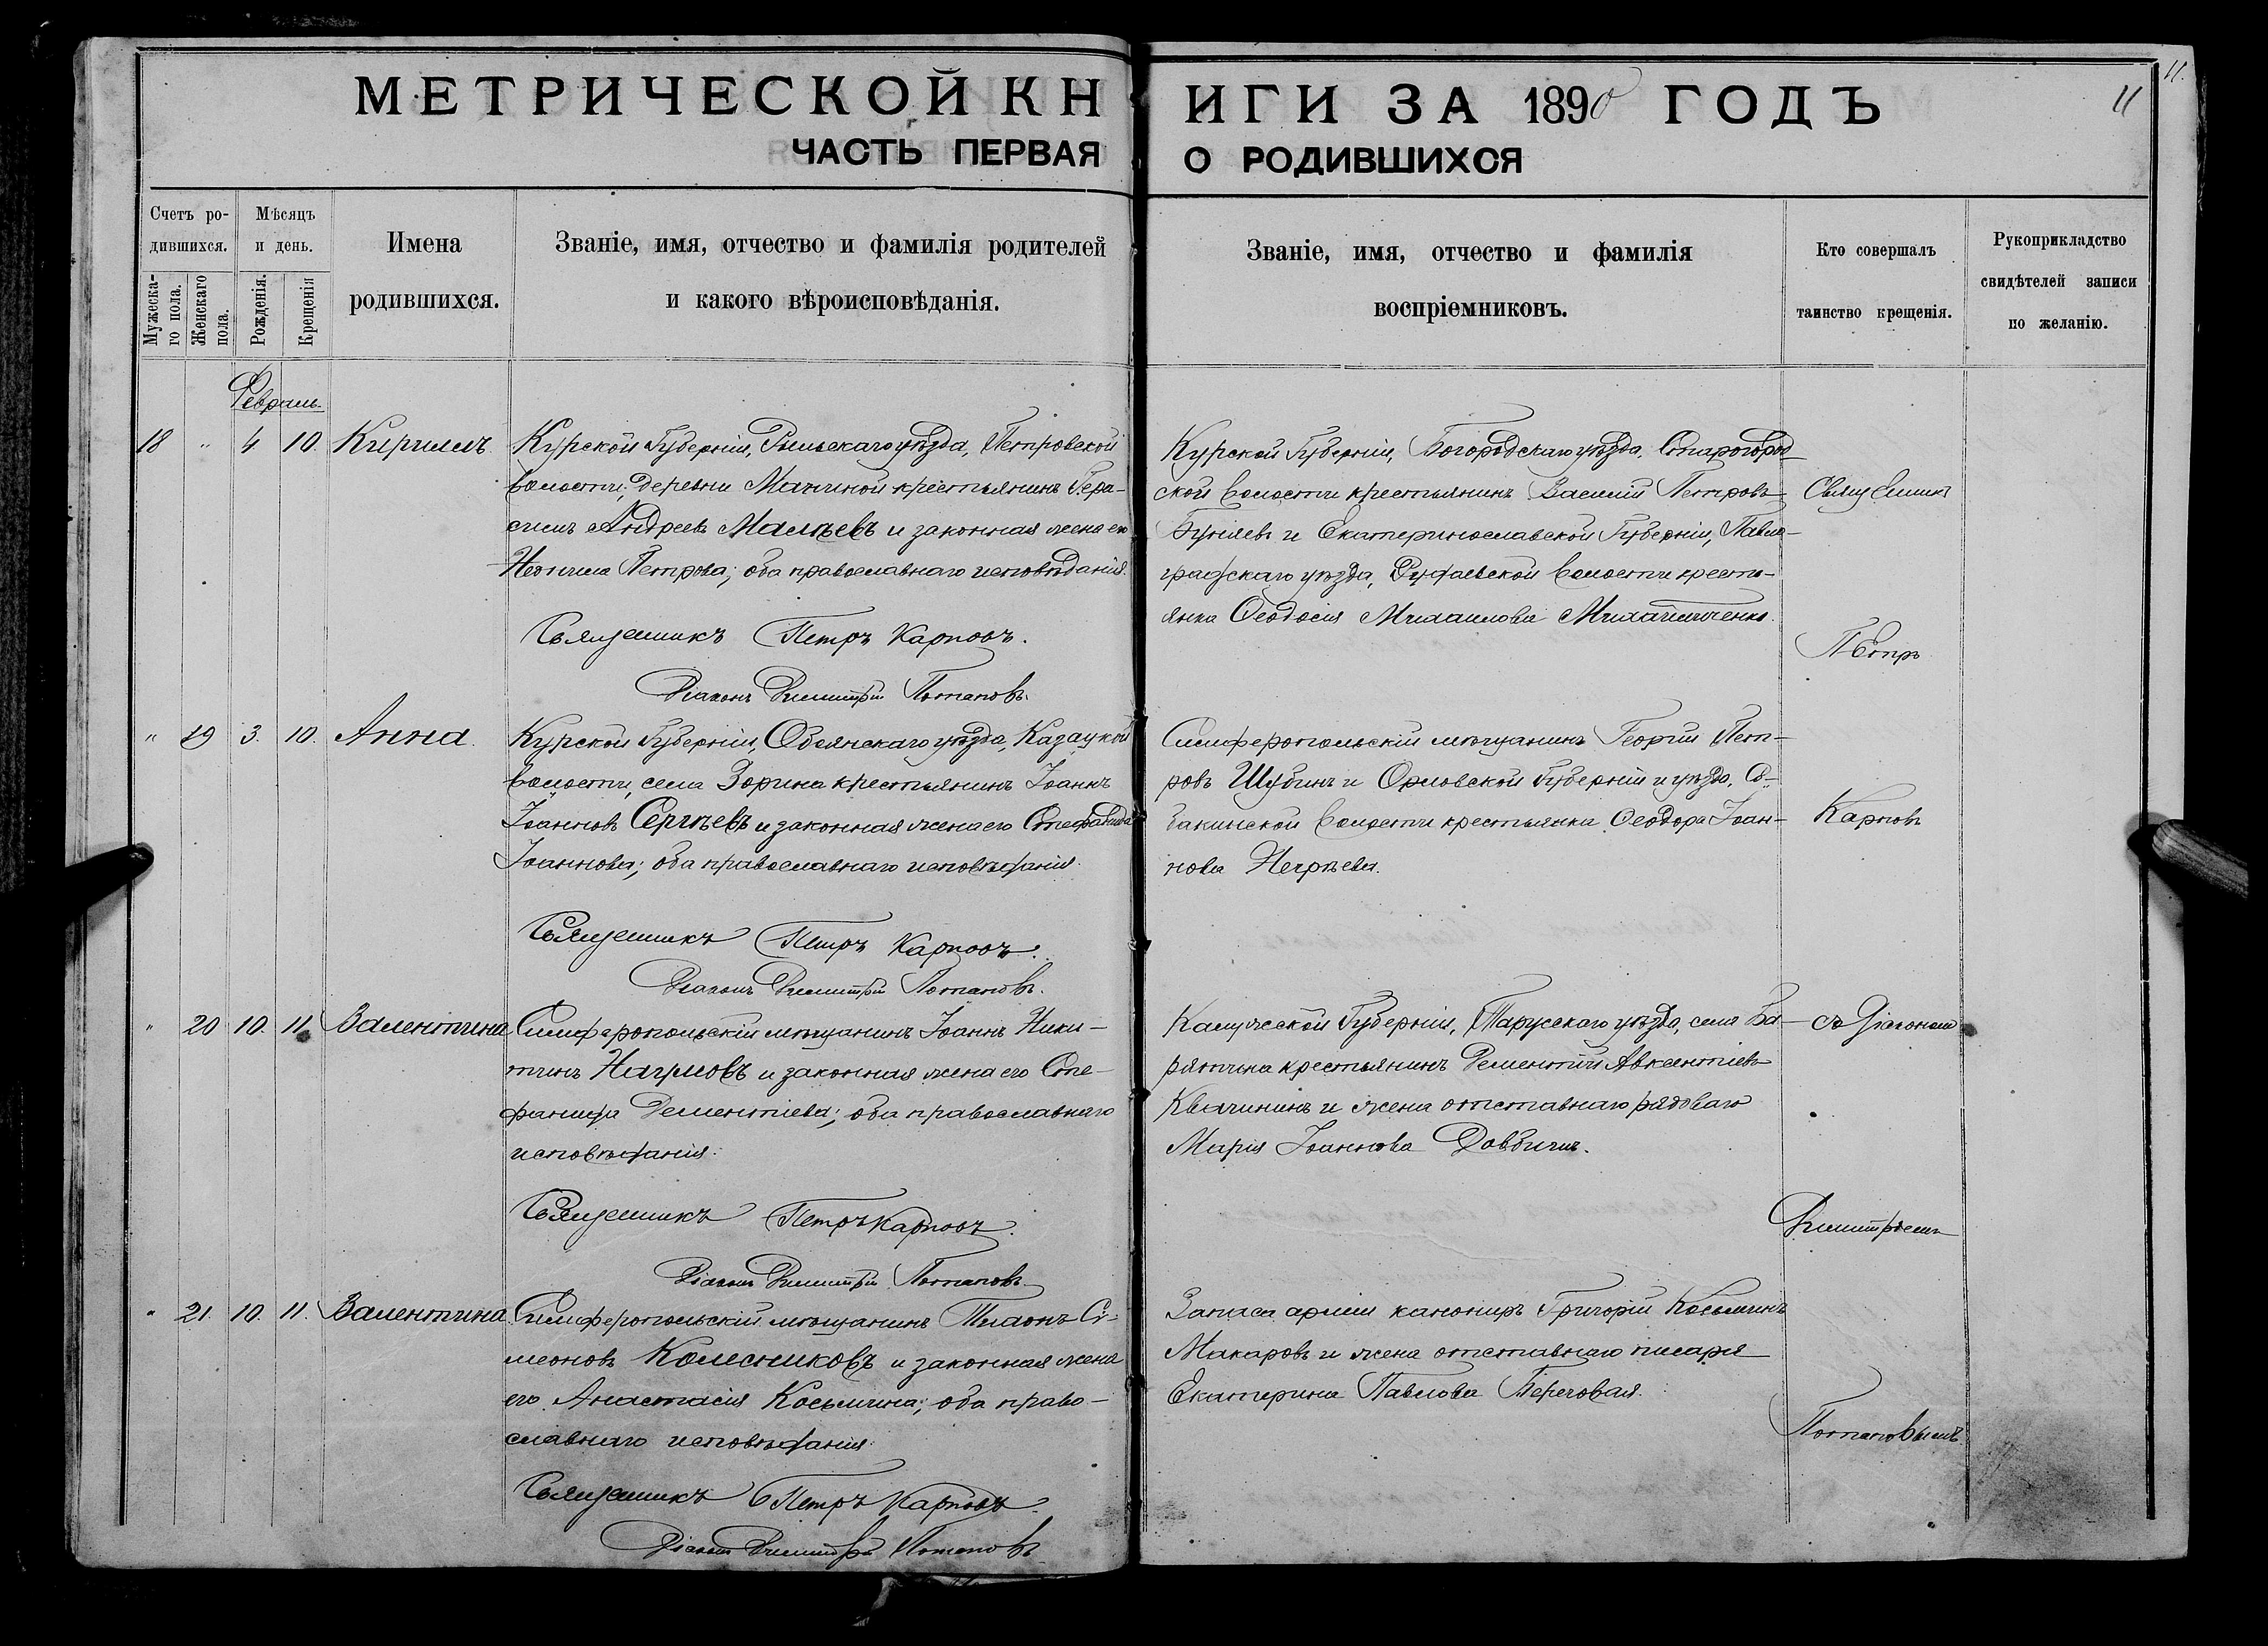 МЕТРИЧЕСКОЙ КНИГИ ЗА 1890 ГОДЪ
11
11.
ЧАСТЬ ПЕРВАЯ О РОДИВШИХСЯ
Счетъ ро-
дившихся.
Мужеска-
го пола.
Женскаго
пола.
Мѣсяцъ
и день.
Рожденія.
Крещенія
Имена
родившихся.
Званіе, имя, отчество и фамилія родителей
и какого вѣроисповѣданія.
Званіе, имя, отчество и фамилія
воспріемниковъ.
Кто совершалъ
таинство крещенія.
Рукоприкладство
свидѣтелей записи
по желанію.
Февраль.
18 " 4. 10. Кириллъ.
Курской Губерніи, Рыльскаго уѣзда, Петровской
волости, деревни Махиной крестьянинъ Гера-
симъ Андреевъ Малѣевъ и законная жена его
Неонила Петрова; оба православнаго исповѣданія.
Священникъ Петръ Карповъ.
Діаконъ Димитрій Потаповъ.
Курской Губерніи, Богородскаго уѣзда, Старогород-
ской волости крестьянинъ Василій Петровъ
и Екатеринославской Губерніи, Павло-
градскаго уѣзда, волости кресть-
янка Ѳеодосія Михаилова Михайличенко.
" 19 3. 10. Анна.
Курской Губерніи, Обоянскаго уѣзда, Казацкой
волости, села Зорина крестьянинъ Іоаннъ
Іоанновъ Сергѣевъ и законная жена его Стефанида
Іоаннова; оба православнаго исповѣданія.
Священникъ Петръ Карповъ.
Діаконъ Димитрій Потаповъ.
Симферопольскій мѣщанинъ Георгій Пет-
ровъ Шубинъ и Орловской Губерніи и уѣзда, Со-
бакинской волости крестьянка Ѳеодора Іоан-
нова Негрѣева.
" 20 10. 11. Валентина
Симферопольскій мѣщанинъ Іоаннъ Ники-
тинъ Наумовъ и законная жена его Сте-
фанида Дементіева; оба православнаго
исповѣданія.
Священникъ Петръ Карповъ.
Діаконъ Димитрій Потаповъ.
Калужской Губерніи, Тарусскаго уѣзда, села Ба-
рятина крестьянинъ Дементій Авксентіевъ
Квачининъ и жена отставнаго рядоваго
Марія Іоаннова Довбичъ.
" 21. 10. 11. Валентина.
Симферопольскій мѣщанинъ Тихонъ Си-
меоновъ Колесниковъ и законная жена
его Анастасія Косьмина; оба право-
славнаго исповѣданія.
Священникъ Петръ Карповъ.
Діаконъ Димитрій Потаповъ.
Запаса арміи канониръ Григорій Косьминъ
Макаровъ и жена отставнаго писаря
Екатерина Павлова Береговая.
Священникъ
Петръ
Карповъ
съ Діакономъ
Димитріемъ
Потаповымъ.